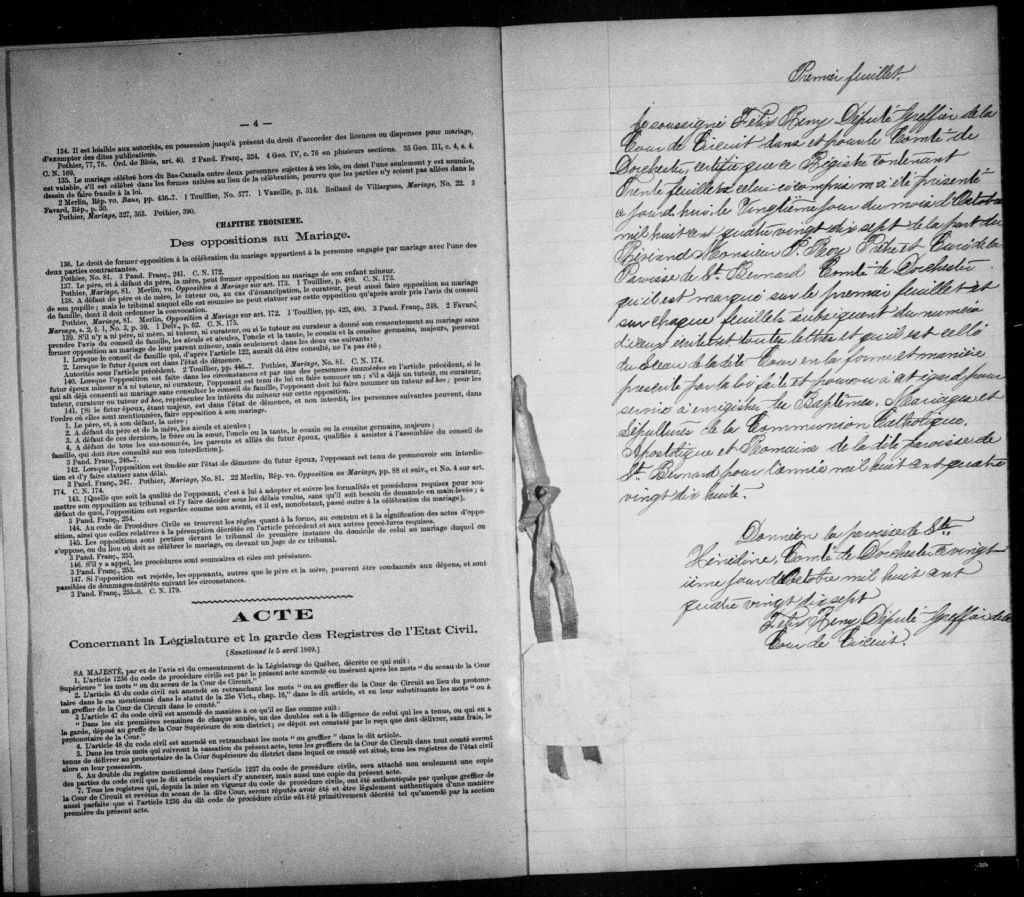 — 4 —
134. Il est loisible aux autorités, en possession jusqu'à présent du droit d'accorder des licences ou dispenses pour mariage,
d'exempter des dites publications.
Pothier, 77, 78. Ord. de Blois, art. 40. 2 Pand. Franç., 324. 4 Geo. IV, c. 76 en plusieurs sections. 35 Geo. III, c. 4, s. 4.
C. N. 169.
135. Le mariage célébré hors du Bas-Canada entre deux personnes sujettes à ses lois, ou dont l'une seulement y est soumise,
est valable, s'il est célébré dans les formes usitées au lieu de la célébration, pourvu que les parties n'y soient pas allées dans le
dessein de faire fraude à la loi.
2 Merlin, Rép. vo. Bans, pp. 436-7. 1 Touillier, No. 577. 1 Vazeille, p. 314. Rolland de Villargues, Mariage, No. 22. 3
Favard, Rép., p. 30.
Pothier, Mariage, 327, 363. Pothier, 390.
CHAPITRE TROISIEME.
Des oppositions au Mariage.
136. Le droit de former opposition à la célébration du mariage appartient à la personne engagée par mariage avec l'une des
deux parties contractantes.
Pothier, No. 81. 3 Pand. Franç., 241. C. N. 172.
137. Le père, et à défaut du père, la mère, peut former opposition au mariage de son enfant mineur.
Pothier, Mariage, 81. Merlin, vo. Oppositions à Mariage sur art. 173. 1 Touillier, p. 489. C. N. 173.
138. A défaut de père et de mère, le tuteur ou, au cas d'émancipation, le curateur, peut aussi faire opposition au mariage
de son pupille; mais le tribunal auquel elle est soumise ne peut statuer sur cette opposition qu'après avoir pris l'avis du conseil
de famille, dont il doit ordonner la convocation.
Pothier, Mariage, 81. Merlin, Opposition à Mariage sur art. 172. 1 Touillier, pp. 425, 490. 3 Pand. Franç., 248. 2 Favard,
Mariage, s. 2, § 1, No. 3, p. 59. 1 Delv., p. 62. C. N. 175.
139. S'il n'y a ni père, ni mère, ni tuteur, ni curateur, ou si le tuteur ou curateur a donné son consentement au mariage sans
prendre l'avis du conseil de famille, les aïeuls et aïeules, l'oncle et la tante, le cousin et la cousine germains, majeurs, peuvent
former opposition au mariage de leur parent mineur, mais seulement dans les deux cas suivants;
1. Lorsque le conseil de famille qui, d'après l'article 122, aurait dû être consulté, ne l'a pas été;
2. Lorsque le futur époux est dans l'état de démence.
Autorités sous l'article précédent. 2 Touillier, pp. 446-7. Pothier, Mariage, No. 81. C. N. 174.
140. Lorsque l'opposition est faite dans les circonstances et par une des personnes énumérées en l'article précédent, si le
futur époux mineur n'a ni tuteur, ni curateur, l'opposant est tenu de lui en faire nommer un; s'il a déjà un tuteur, ou curateur,
qui ait déjà consenti au mariage sans consulter le conseil de famille, l'opposant doit lui faire nommer un tuteur ad hoc; pour les
tuteur, curateur ou tuteur ad hoc, représenter les intérêts du mineur sur cette opposition.
141. [Si le futur époux, étant majeur, est dans l'état de démence, et non interdit, les personnes suivantes peuvent, dans
l'ordre où elles sont mentionnées, faire opposition à son mariage.
1. Le père, et, à son défaut, la mère;
2. A défaut du père et de la mère, les aïeuls et aïeules;
3. A défaut de ces derniers, le frère ou la sœur, l'oncle ou la tante, le cousin ou la cousine germains, majeurs;
4. A défaut de tous les sus-nommés, les parents et alliés du futur époux, qualifiés à assister à l'assemblée du conseil de
famille, qui doit être consulté sur son interdiction].
3 Pand. Franç., 246-7.
142. Lorsque l'opposition est fondée sur l'état de démence du futur époux, l'opposant est tenu de promouvoir son interdic-
tion et d'y faire statuer sans délai.
3 Pand. Franç., 247. Pothier, Mariage, No. 81. 22 Merlin, Rép. vo. Opposition au Mariage, pp. 88 et suiv., et No. 4 sur art.
174. C. N. 174.
143. [Quelle que soit la qualité de l'opposant, c'est à lui à adopter et suivre les formalités et procédures requises pour sou-
mettre son opposition au tribunal et l'y faire décider sous les délais voulus, sans qu'il soit besoin de demande en main-levée; à
défaut de quoi, l'opposition est regardée comme non avenu, et il est, nonobstant, passé outre à la célébration du mariage].
3 Pand. Franç., 254.
144. Au code de Procédure Civile se trouvent les règles quant à la forme, au contenu et à la signification des actes d'oppo-
sition, ainsi que celles relatives à la péremption décrétée en l'article précédent et aux autres procédures requises.
145. Les oppositions sont portées devant le tribunal de première instance du domicile de celui au mariage duquel on
s'oppose, ou du lieu où doit se célébrer le mariage, ou devant un juge de ce tribunal.
3 Pand. Franç., 253.
146. S'il y a appel, les procédures sont sommaires et elles ont préséance.
3 Pand. Franç., 253.
147. Si l'opposition est rejetée, les opposants, autres que le père et la mère, peuvent être condamnés aux dépens, et sont
passibles de dommages-intérêts suivant les circonstances.
3 Pand. Franç., 255-6. C. N. 179.
ACTE
Concernant la Législature et la garde des Registres de l'Etat Civil.
[Sanctionné le 5 avril 1869.]
SA MAJESTÉ, par et de l'avis et du consentement de la Législature de Québec, décrète ce qui suit:
1. L'article 1236 du code de procédure civile est par le présent acte amendé en insérant après les mots "du sceau de la Cour
Supérieure" les mots "ou du sceau de la Cour de Circuit."
2. L'article 45 du code civil est amendé en retranchant les mots "ou au greffier de la Cour de Circuit au lieu du protono-
taire dans le cas mentionné dans le statut de la 25e Vict., chap. 16," dans le dit article, et en leur substituants les mots "ou à
un greffier de la Cour de Circuit dans le comté."
3 L'article 47 du code civil est amendé de manière à ce qu'il se lise comme suit:
"Dans les six premières semaines de chaque année, un des doubles est à la diligence de celui qui les a tenus, ou qui en a
la garde, déposé au greffe de la Cour Supérieure de son district; ce dépôt est constaté par le reçu que doit délivrer, sans frais, le
protonotaire de la Cour."
4. L'article 48 du code civil est amendé en retranchant les mots "ou greffier" dans le dit article.
5. Dans les trois mois qui suivront la passation du présent acte, tous les greffiers de la Cour de Circuit dans tout comté seront
tenus de délivrer au protonotaire de la Cour Supérieure du district dans lequel ce comté est situé, tous les registres de l'état civil
alors en leur possession.
6. Au double du registre mentionné dans l'article 1237 du code de procédure civile, sera attaché non seulement une copie
des parties du code civil que le dit article requiert d'y annexer, mais aussi une copie du présent acte.
7. Tous les registres qui, depuis la mise en vigueur du code de procédure civile, ont été authentiqués par quelque greffier de
la Cour de Circuit et revêtus du sceau de la dite Cour, seront réputés avoir été et être légalement authentiqués d'une manière
aussi parfaite que si l'article 1236 du dit code de procédure civile eût été primitivement décrété tel qu'amendé par la section
première du présent acte.
Premier feuillet.
Je soussigné Felix Remy Député Greffier de la
Cour de Circuit dans et pour le Comté de
Dorchester, certifie que ce Registre contenant
Trente feuillets celui ci compris m'a été présenté
ce jourd'hui, le Vingtième jour du mois d'Octobre
mil huit cent quatre vingt dix sept de la part du
Révérand Monsieur P. Roy Prêtre et Curé de la
Paroisse de St. Bernard Comté de Dorchester
qu'il est marqué sur le premier feuillet et
sur chaque feuillets subséquent du numéro
d'iceux écrit en toutes lettres et qu'il est cellé
du Sceau de la dite Cour en la forme et manière
prescrite par la loi, fait et pourvu à cet égard pour
servir à enregistrer les Baptêmes, Mariages et
Sépultures de la Communion Catholique,
Apostolique et Romaine de la dite paroisse de
St. Bernard pour l'année mil huit cent quatre
vingt dix huite.
Donnée en la paroisse de Ste
Hénédine, Comté de Dorchester ce vingt
ième jour d'Octobre mil huit cent
quatre vingt dix sept
Felix Remy Député Greffier de la
Cour de Circuit.